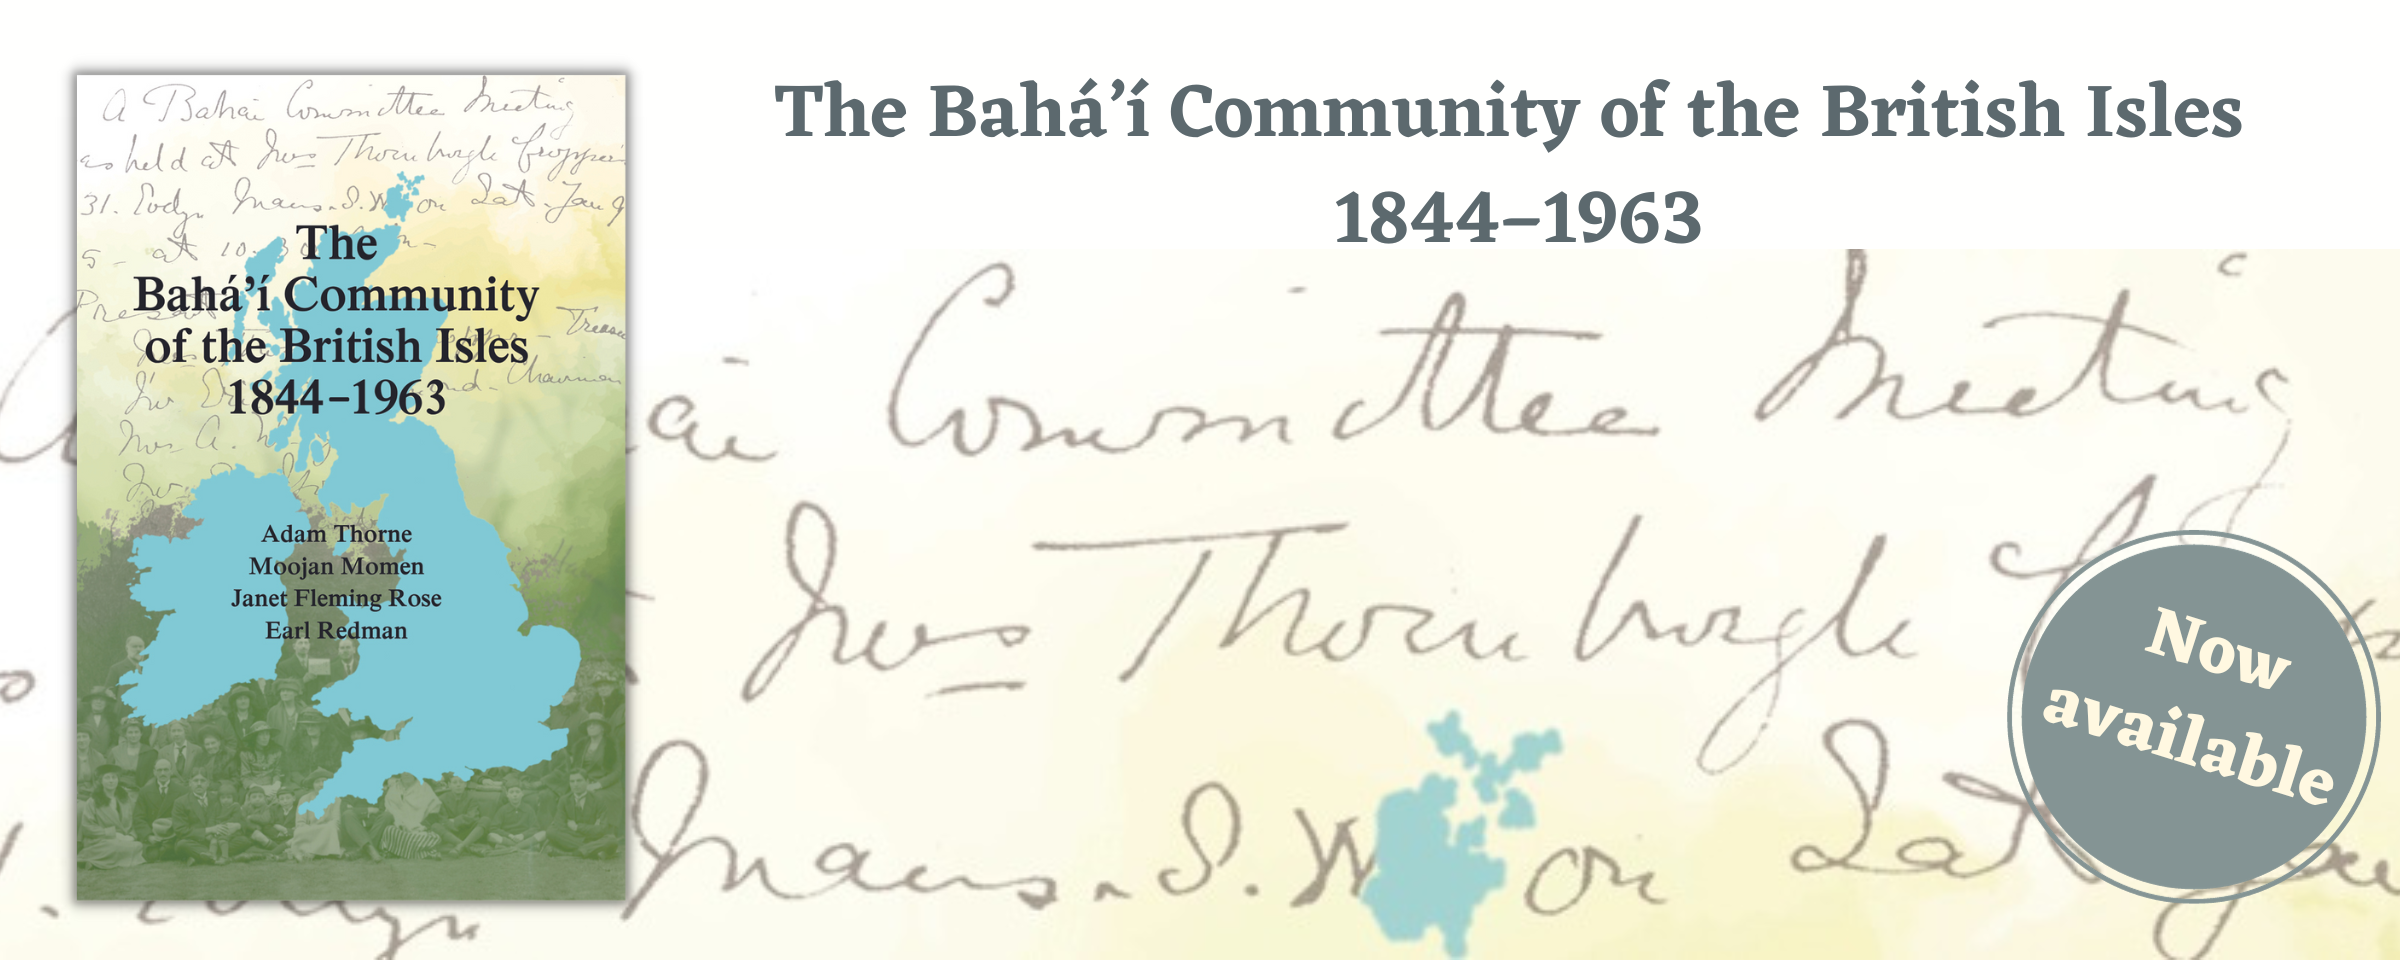 A Bahai Committee Meeting
as held at Mrs Thornburgh Cropper
31. Evelyn Mans. S.W on Sat. Jan 9
5 - at 10.30
The
Bahá’í Community
of the British Isles
1844–1963
Present
Treasu
Chairman
Mrs A.
Adam Thorne
Moojan Momen
Janet Fleming Rose
Earl Redman
The Bahá’í Community of the British Isles
1844–1963
ai Committee Meeting
Mrs Thornburgh
Mans. S.W on Sat
Now
available